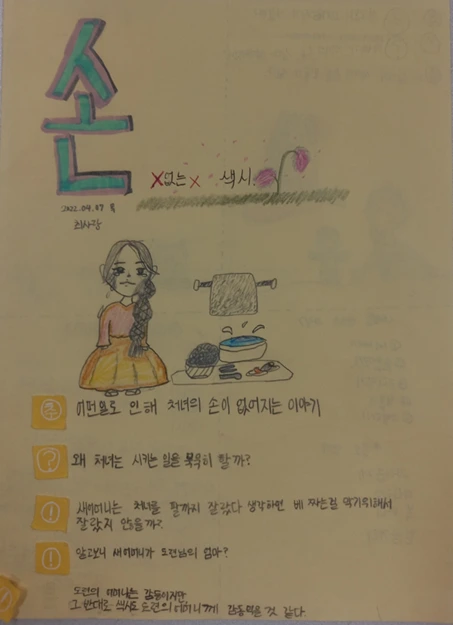 손
X없는X 색시
2022.04.07 목
최사랑
줄 어떤일로 인해 처녀의 손이 없어지는 이야기
? 왜 처녀는 시키는 일을 묵묵히 할까?
! 새어머니는 처녀를 팔까지 잘랐다 생각하면 베 짜는걸 막기위해서
잘랐지 않을까?
! 알고보니 새어머니가 도련님의 엄마?
도련의 어머니는 감동이지만
그 반대로 색시도 도련의 어머니께 감동먹을 것 같다.